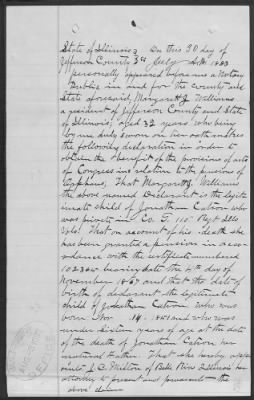 State of Illinois } On this 30 day of
Jefferson County } ss July A.D. 1883
personally appeared before me a Notary
Public in and for the county and
State aforesaid, Margarett J. Williams
a resident of Jefferson County and State
of Illinois, aged 32 years who being
by me duly sworn on her oath makes
the following declaration in order to
obtain the benefit of the provisions of acts
of Congress in relation to the pensions of
Orphans, That Margarett J. Williams
the above named Declarant is the legit
imate child of Jonathan Catron who
was private in Co. G. 110 Regt Ills
Vols. That on account of his death she
has been granted a pension in accor
dance with the certificate numbered
bearing date the 4th day of
November 1867 and that the date of
birth of declarant the legitimate
child of Jonathan Catron who was
born Nov 14. 1851 and who was
under sixteen years of age at the date
of the death of Jonathan Catron her
father. That she hereby appo
ints J. C. of Illinois her
attorney to present and prosecute the
above claim